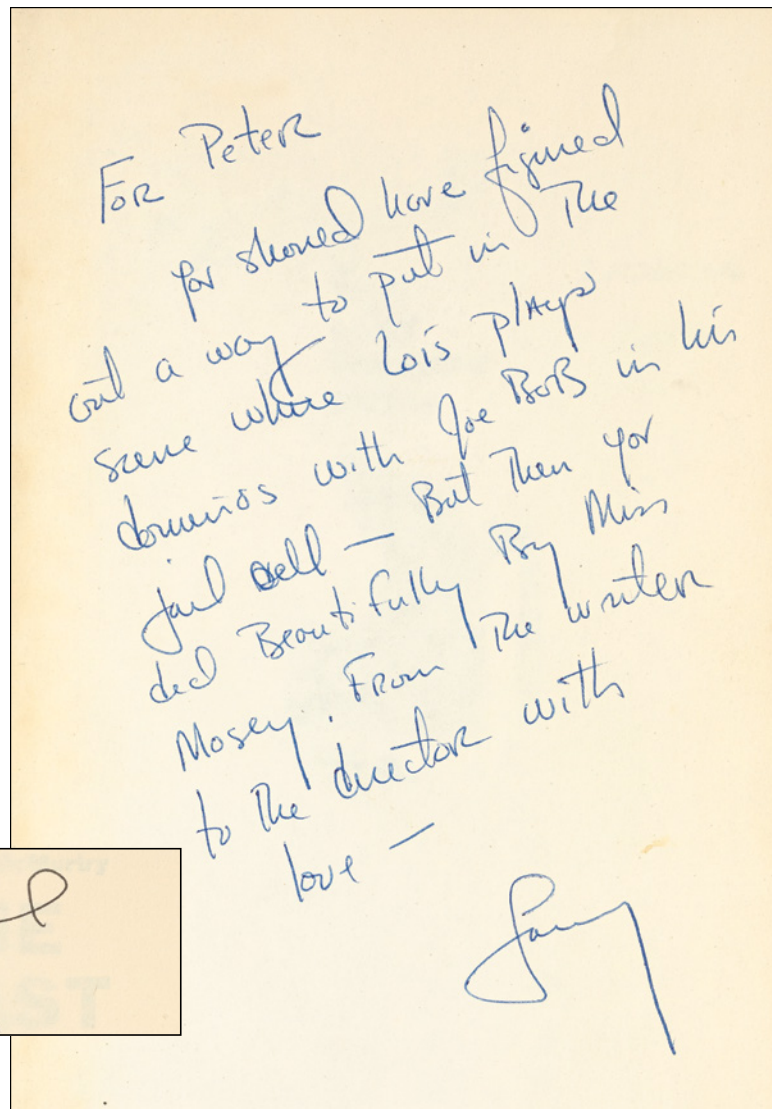 FOR PeteR
you should have figured
out a way to put in The
scene where Lois plays
dominos with Joe BoB in his
jail cell — But Then you
did Beautifully By Miss
Mosey. FRom The writeR
to The directoR with
love —
Larry